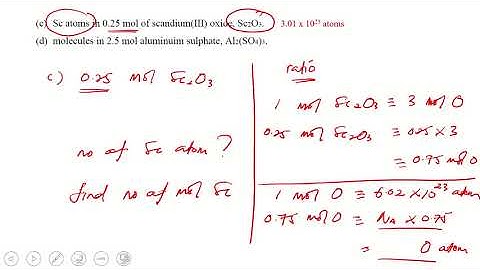 (c) Sc atoms in 0.25 mol of scandium(III) oxide, Sc₂O₃. 3.01 x 10²³ atoms
(d) molecules in 2.5 mol aluminuim sulphate, Al₂(SO₄)₃.
c) 0.25 mol Sc₂O₃
no of Sc atom ?
find no of mol Sc
ratio
1 mol Sc₂O₃ ≡ 3 mol O
0.25 mol Sc₂O₃ ≡ 0.25 x 3
≡ 0.75 mol O
1 mol O ≡ 6.02 x 10²³ atom
0.75 mol O ≡ NA x 0.75
= O atom